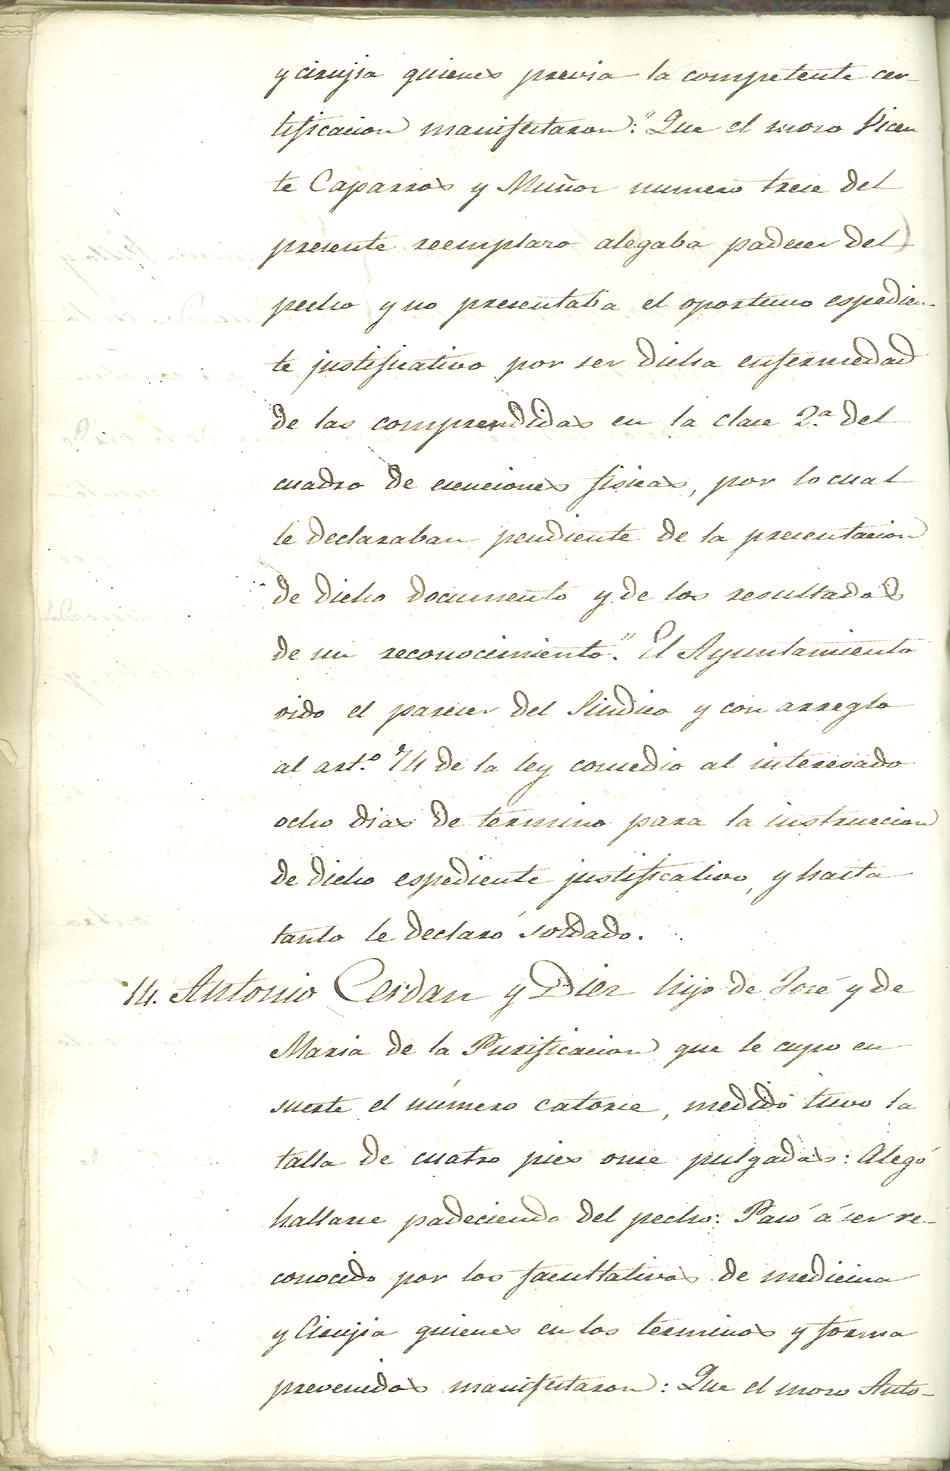 y cirujia quienes previa la competente cer-
tificacion manifestaron: "Que el mozo Vicen
te Caparros y Muñoz numero trece del
presente reemplazo alegaba padecer del
pecho y no presentaba el oportuno espedien-
te justificativo por ser dicha enfermedad
de las comprendidas en la clase 2.ª del
cuadro de esenciones fisicas, por lo cual
le declaraban pendiente de la presentacion
de dicho documento y de los resultados
de un reconocimiento." El Ayuntamiento
oido el parecer del Sindico y con arreglo
al art.º 74 de la ley concedio al interesado
ocho dias de termino para la instruccion
de dicho espediente justificativo, y hasta
tanto le declaró soldado.
14. Antonio Cerdan y Diez hijo de José y de
Maria de la Purificacion que le cupo en
suerte el número catorce, medido tuvo la
talla de cuatro pies once pulgadas: Alegó
hallarse padeciendo del pecho: Pasó á ser re-
conocido por los facultativos de medicina
y Cirujia quienes en los terminos y forma
prevenidos manifestaron: Que el mozo Anto-